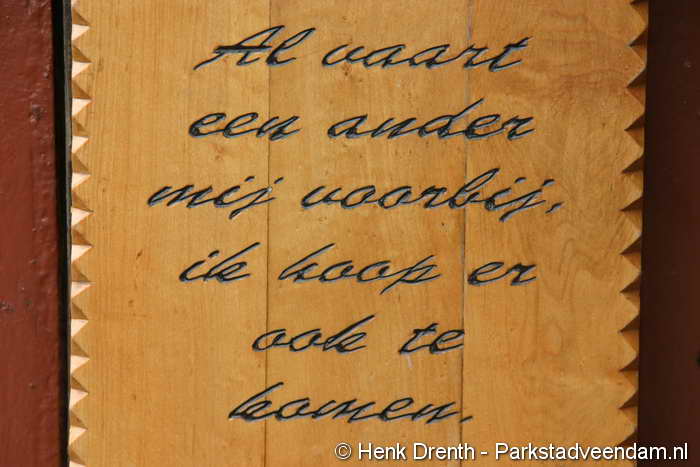 Al vaart
een ander
mij voorbij,
ik hoop er
ook te
komen.
© Henk Drenth - Parkstadveendam.nl